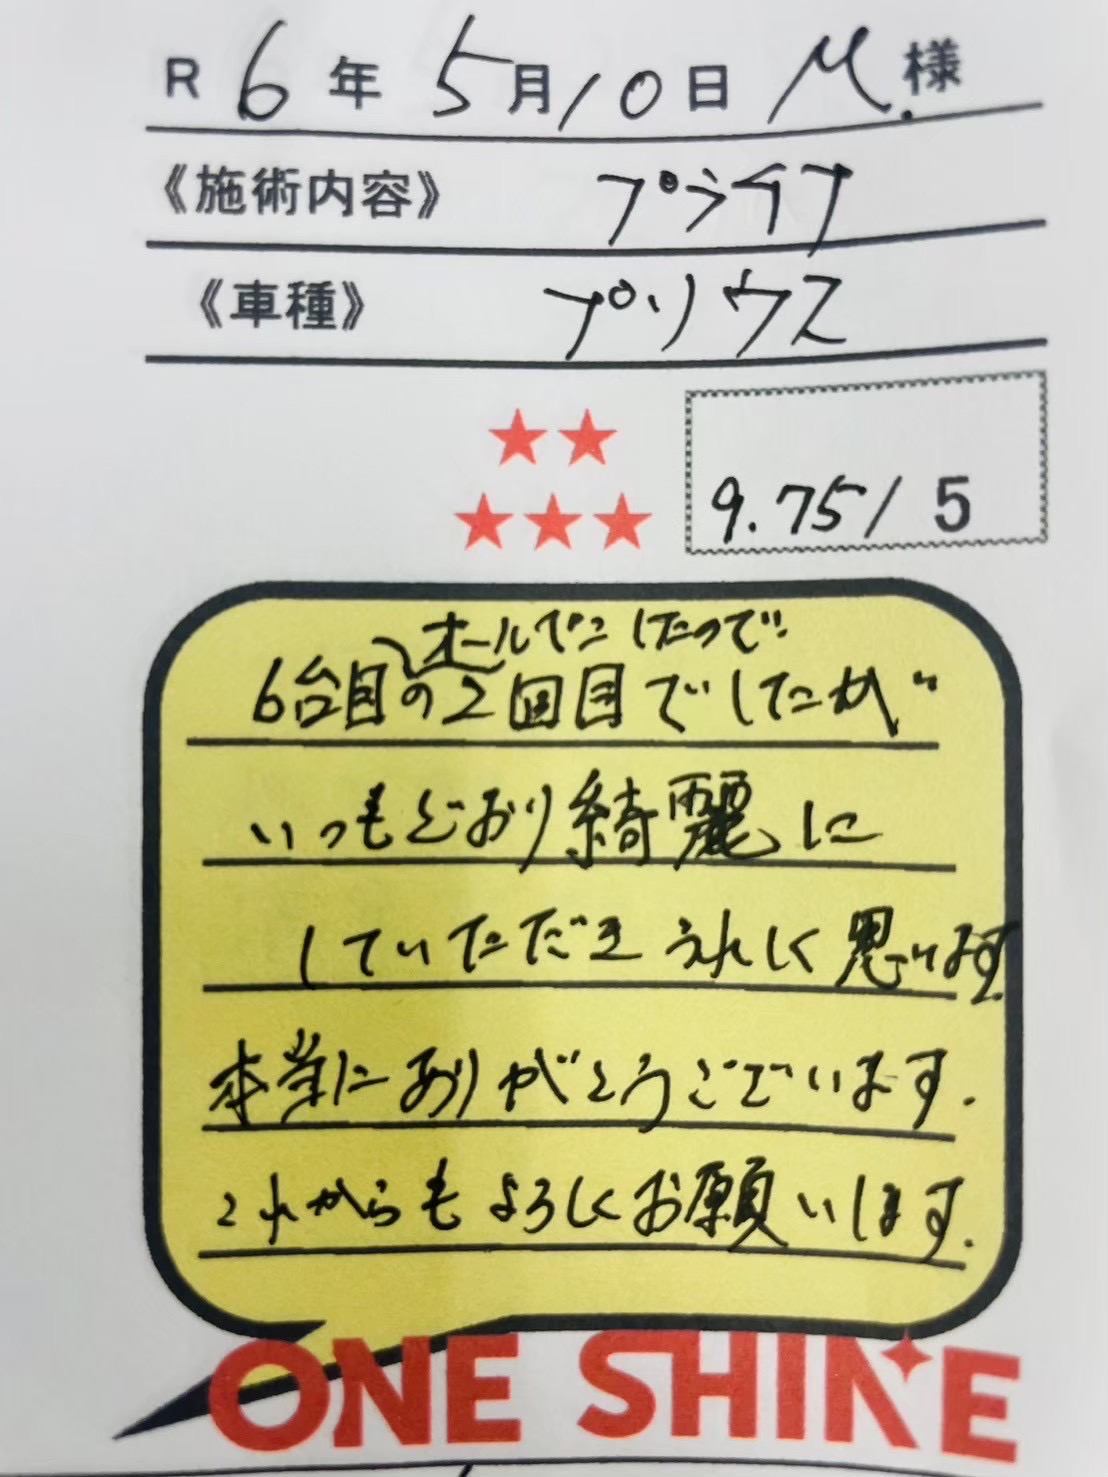 R 6年 5月10日 M.様
《施術内容》 プライブ
《車種》 プリウス
9.75/5
オールペンしたので
6台目の2回目でしたが
いつもどおり綺麗に
していただきうれしく思います
本当にありがとうございます.
これからもよろしくお願いします.
ONE SHINE